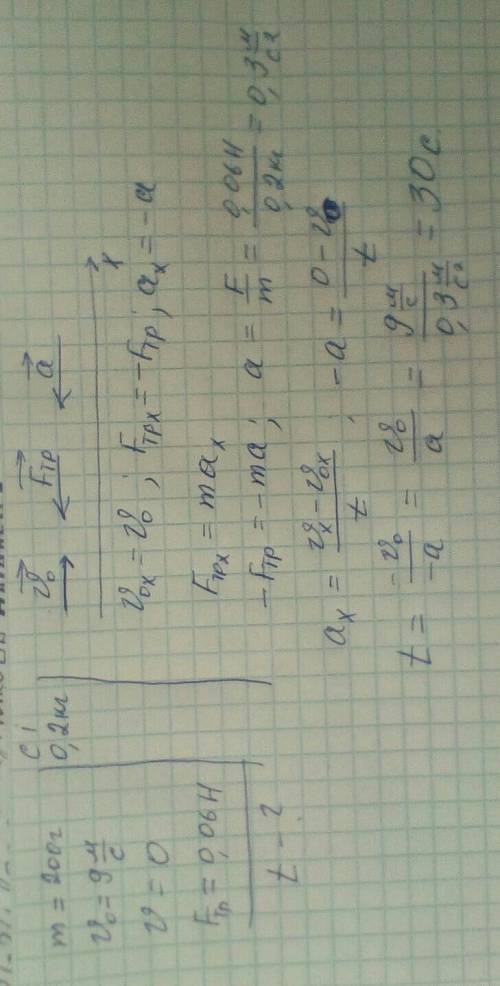 СИ
m = 200г
0,2кг
v₀ = 9 м/с
v = 0
Fтр = 0,06Н
t - ?
v₀ Fтр a
x
v₀ₓ = v₀ ; Fтрₓ = -Fтр ; aₓ = -a
Fтрₓ = maₓ
-Fтр = -ma ; a = F/m = 0,06Н/0,2кг = 0,3 м/с²
aₓ = (vₓ - v₀ₓ)/t ; -a = (0 - v₀)/t
t = -v₀/-a = v₀/a = 9 м/с / 0,3 м/с² = 30с